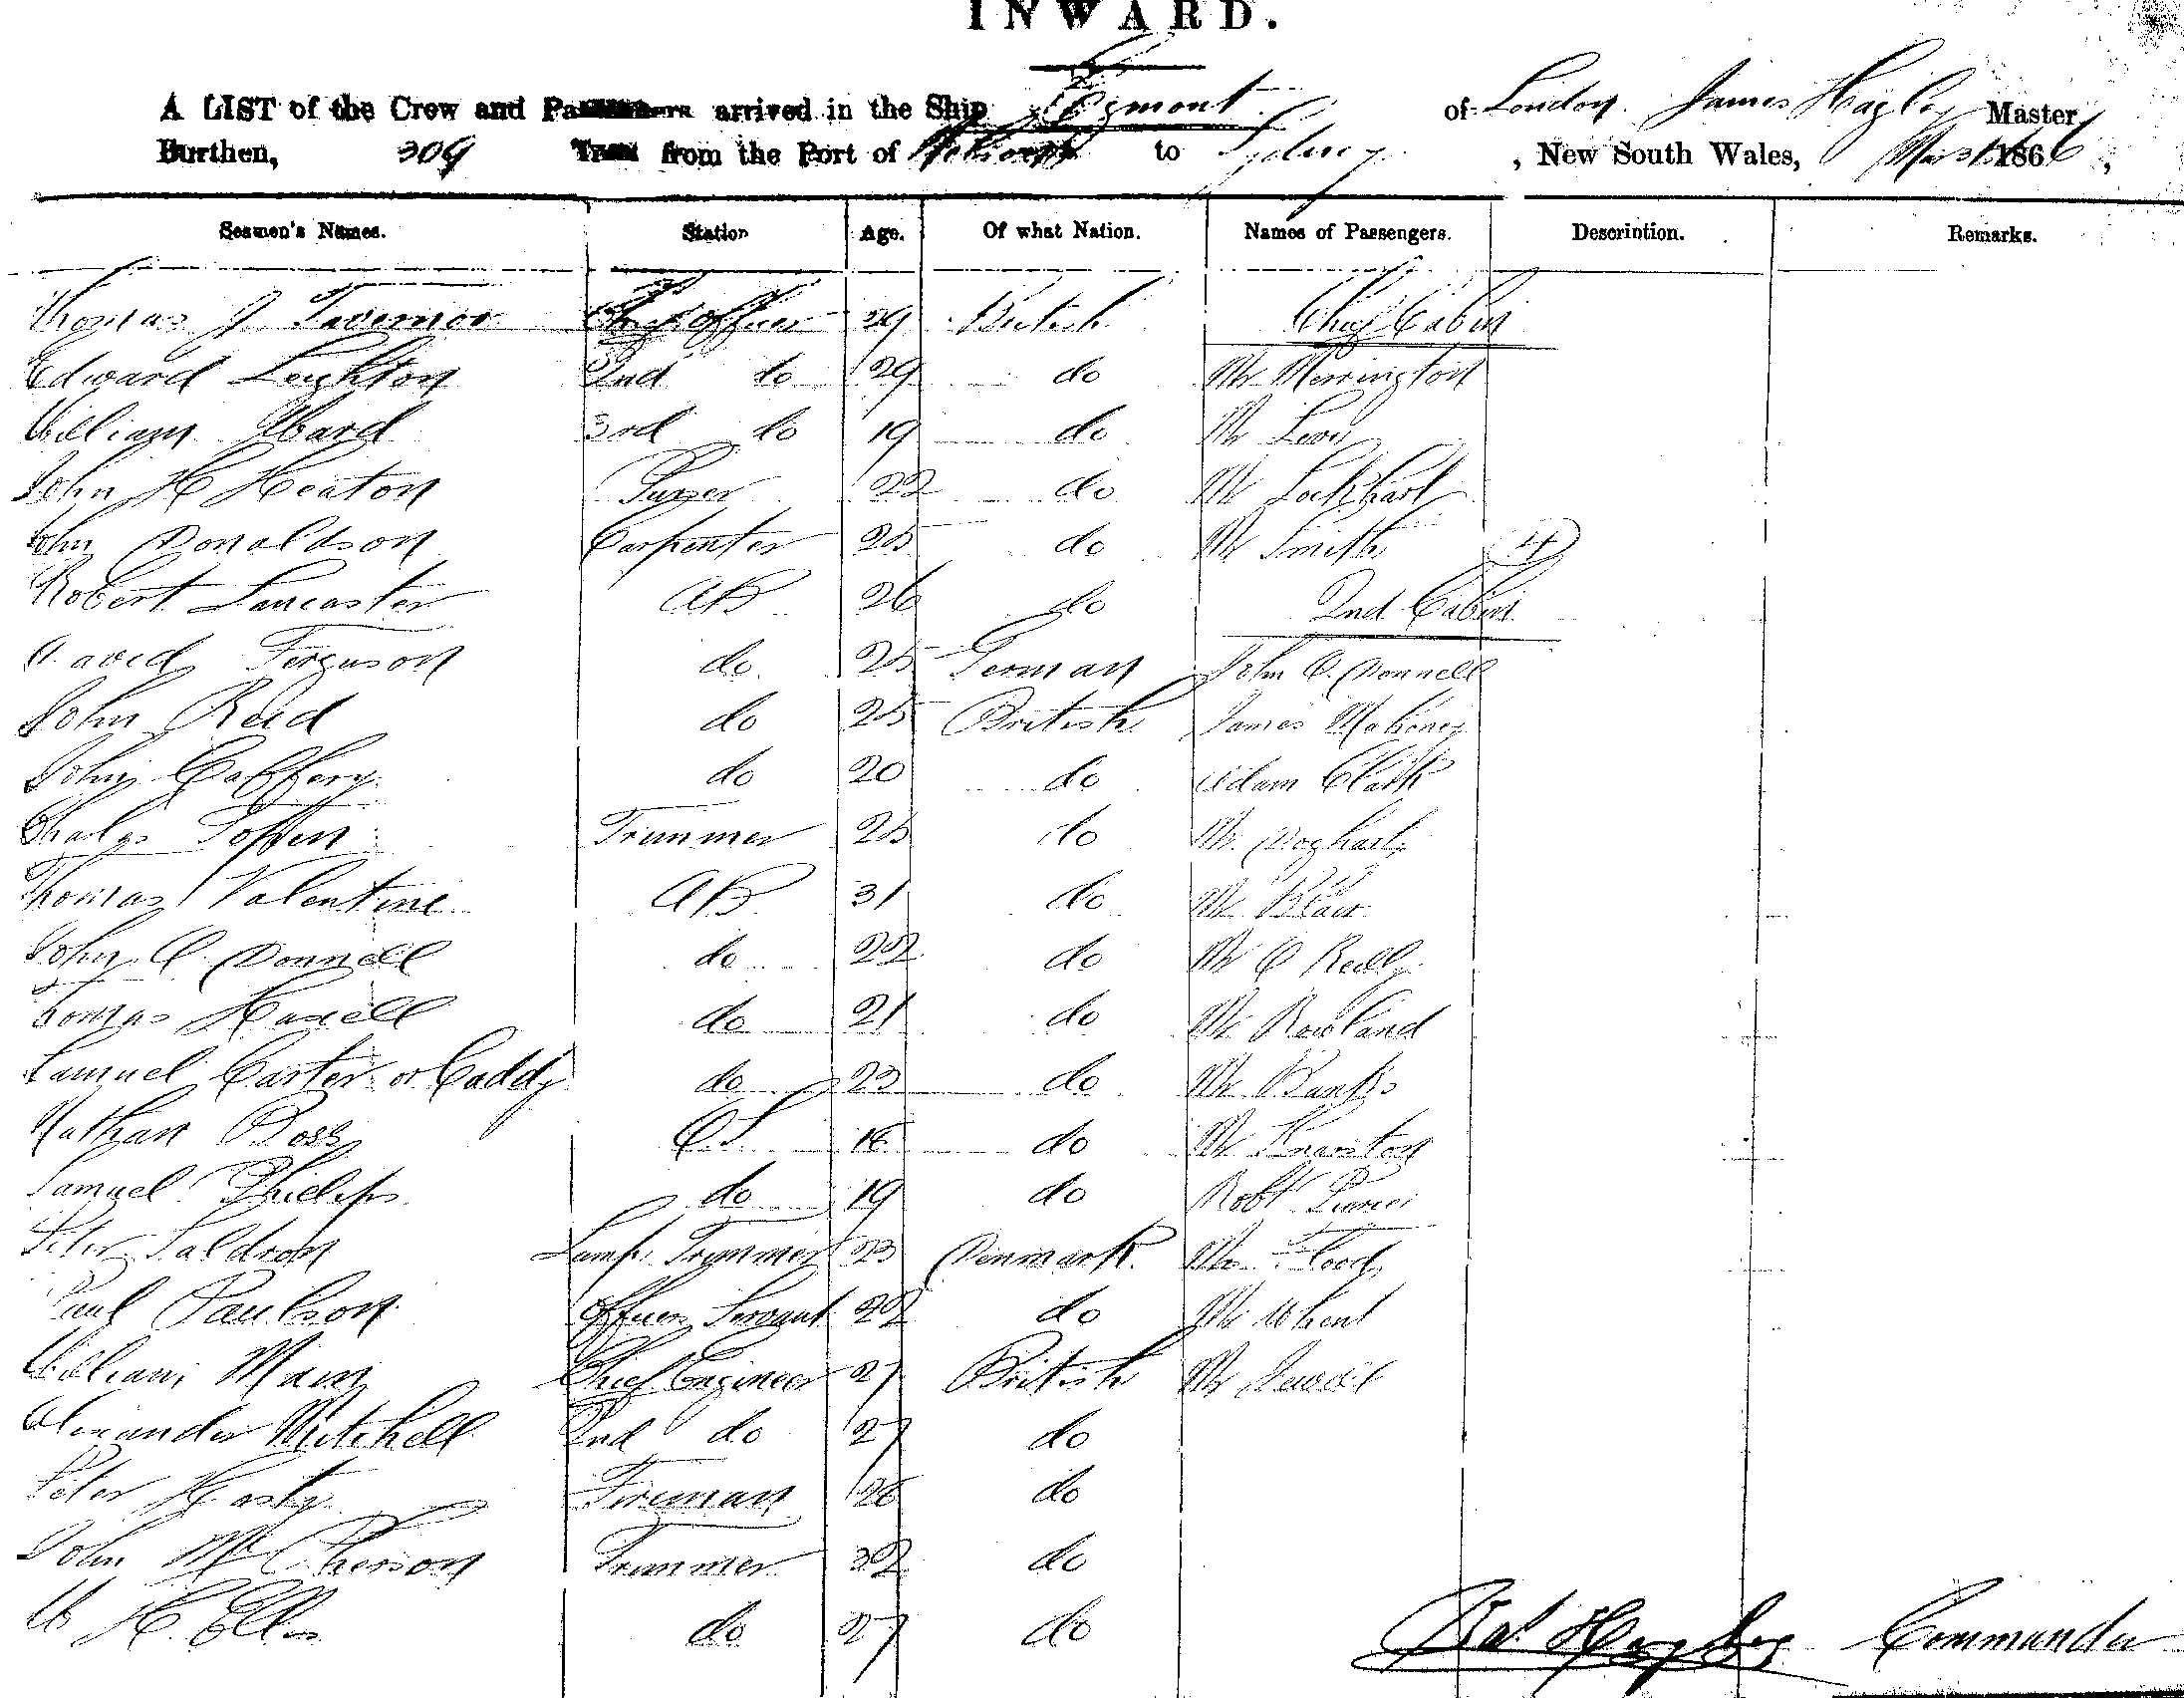 INWARD.
A LIST of the Crew and Passengers arrived in the Ship Egmont of London James Hagley Master
Burthen, 309 Tons from the Port of to Sydney, New South Wales, Mar 31 1866,
Seamen's Names. Station Age. Of what Nation. Names of Passengers. Description. Remarks.
Thomas J. Tavernor Chief Officer 29 British Chief Cabin
Edward Leighton 2nd do 29 do Mr Merrington
William Ward 3rd do 19 do Mr Levi
John H Heaton Purser 22 do Mr Lockhart
John Donaldson Carpenter 25 do Mr Smith 4
Robert Lancaster AB 26 do 2nd Cabin
David Ferguson do 25 German John O. Donnell
John Reid do 25 British James Mahoney
John Caffery do 20 do Adam Clark
Charles Trimmer 25 do Mr
Thomas Valentine AB 31 do Mr Blair
John O. Donnell do 22 do Mr O Reilly
Thomas do 21 do Mr Rowland
Samuel Carter or Caddy do 23 do Mr Banks
Nathan Ross OS 18 do Mr
Samuel Philips do 19 do Robt
Peter Saldron Lamp Trimmer 23 Denmark Mr Flood
Paul Paulson Officers Servant 22 do Mr
William Main Chief Engineer 27 British Mr
Alexander Mitchell 2nd do 27 do
Peter Hasty Fireman 26 do
John McPherson Trimmer 32 do
W H. Ellis do 27 do Commander